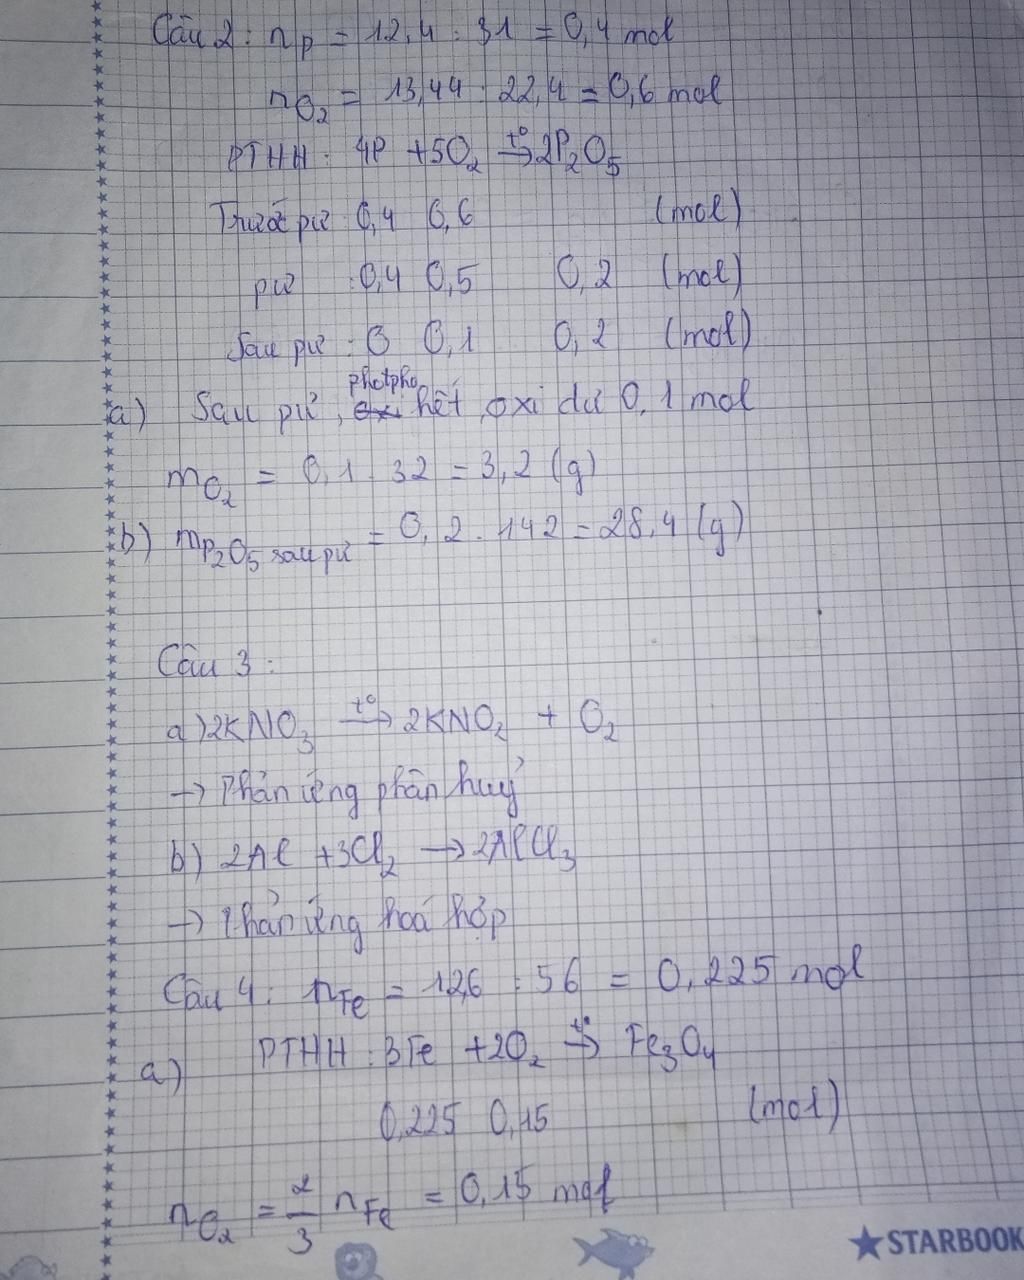 Câu 2: nP = 12,4 : 31 = 0,4 mol
nO₂ = 13,44 : 22,4 = 0,6 mol
PTHH: 4P + 5O₂ →t° 2P₂O₅
Trước pư 0,4 0,6 (mol)
pư : 0,4 0,5 0,2 (mol)
Sau pư : 0 0,1 0,2 (mol)
photpho
a) Sau pư, oxi hết, oxi dư 0,1 mol
mO₂ = 0,1 . 32 = 3,2 (g)
b) mP₂O₅ sau pư = 0,2 . 142 = 28,4 (g)
Câu 3:
a) 2KNO₃ →t° 2KNO₂ + O₂
→ Phản ứng phân huỷ
b) 2Al + 3Cl₂ → 2AlCl₃
→ Phản ứng hoá hợp
Câu 4: nFe = 12,6 : 56 = 0,225 mol
PTHH: 3Fe + 2O₂ →t° Fe₃O₄
a)
0,225 0,15 (mol)
nO₂ = 2/3 nFe = 0,15 mol
STARBOOK